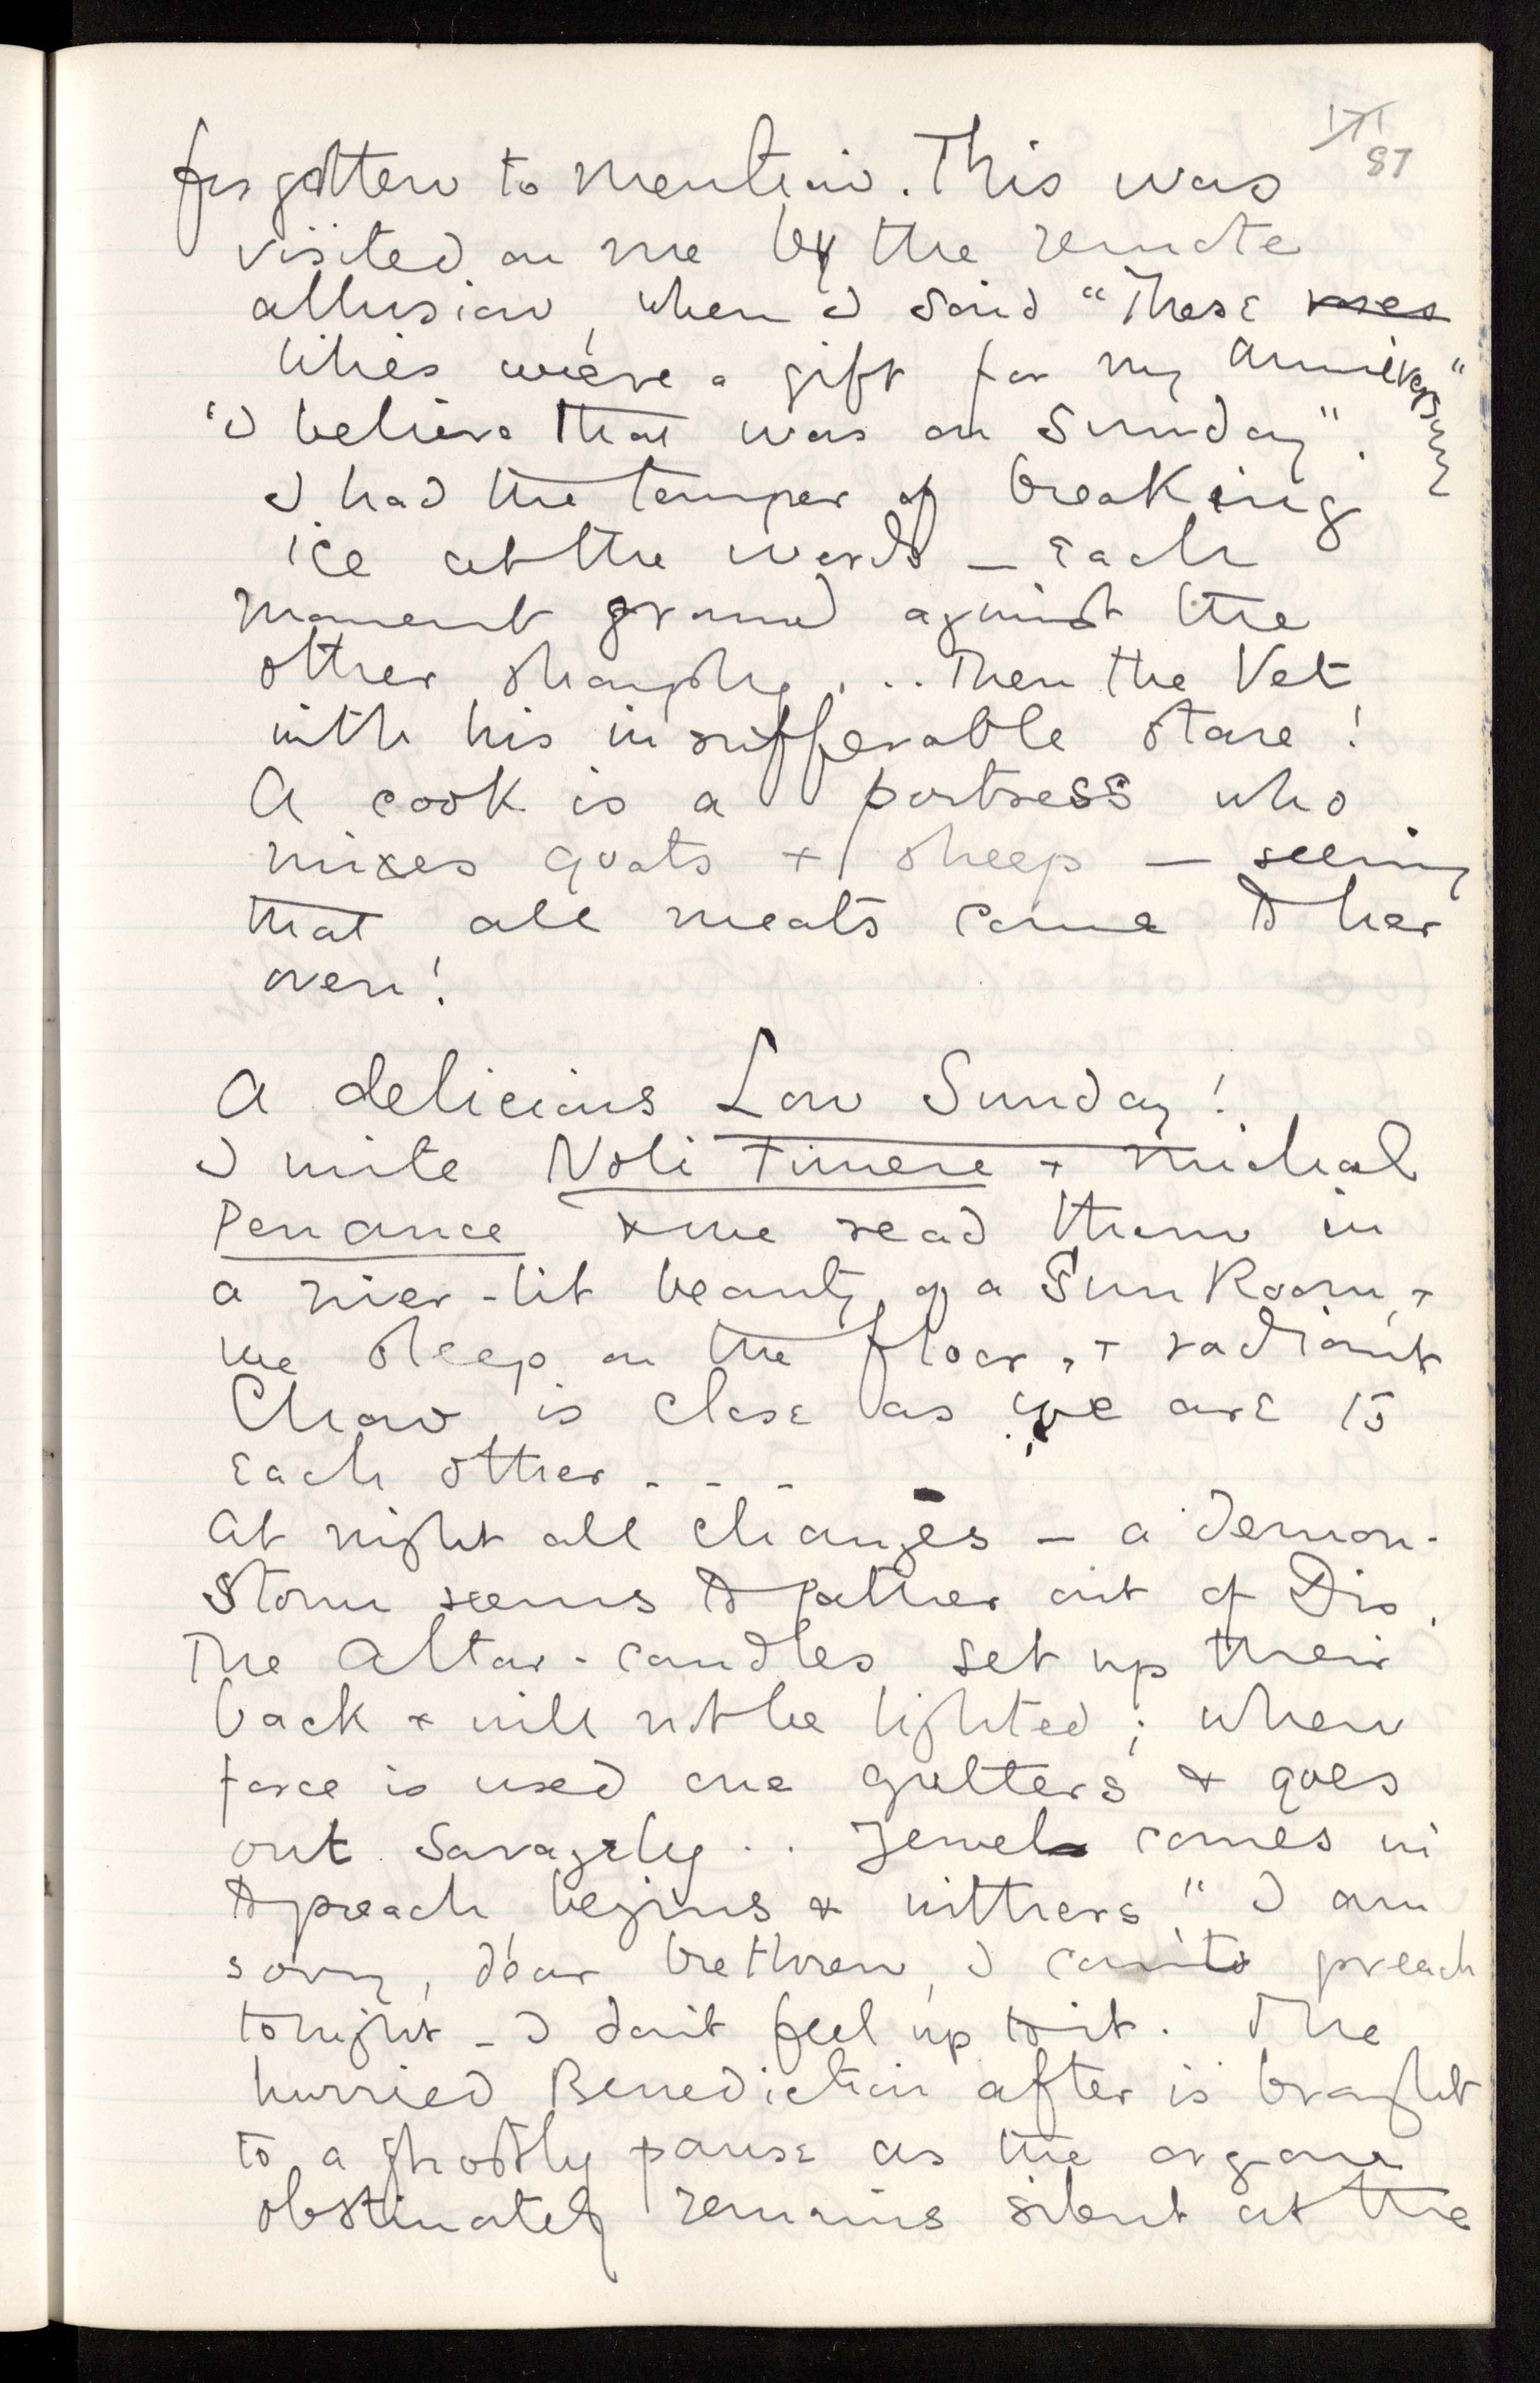 171
87
forgotten to mention. This was
visited on me by the remote
allusion, when I said "These roses
lilies were a gift for my anniversary"
"I believe that was on Sunday".
I had the temper of breaking
ice at the words — Each
moment ground against the
other sharply... Then the Vet
with his insufferable stare!
A cook is a portress who
mixes goats + sheep — seeing
that all meats come to her
oven!
A delicious Low Sunday!
I write Noli Timere + Michael
Penance + we read them in
a river-lit beauty of a Sun Room, +
we sleep on the floor, + radiant
Chow is close as we are to
Each other - - -
At night all changes — a demon-
storm seems to gather out of Dis.
The Altar-candles set up their
back + will not be lighted; when
force is used one gutters & goes
out savagely.. Jewel comes in
to preach begins & withers "I am
sorry, dear brethren, I can't preach
tonight - I don't feel up to it. The
hurried Benediction after is brought
to a ghostly pause as the organ
obstinately remains silent at the